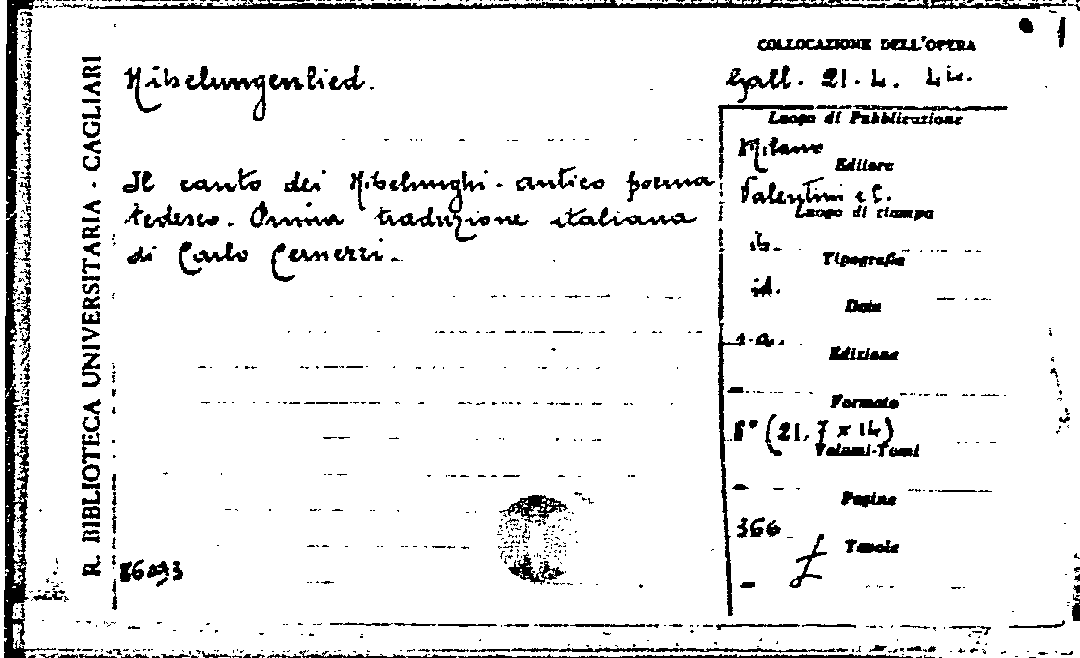 R. BIBLIOTECA UNIVERSITARIA - CAGLIARI
Nibelungenlied.
Il canto dei Nibelunghi - antico poema
tedesco. Prima traduzione italiana
di Carlo Cernezzi.
86093
COLLOCAZIONE DELL'OPERA
Gall. 21. 4. 44.
Luogo di Pubblicazione
Milano
Editore
Valentini e C.
Luogo di stampa
ib.
Tipografia
id.
Data
s.a.
Edizione
–
Formato
8° (21,7 x 14)
Volumi-Tomi
–
Pagine
366
Tavole
–